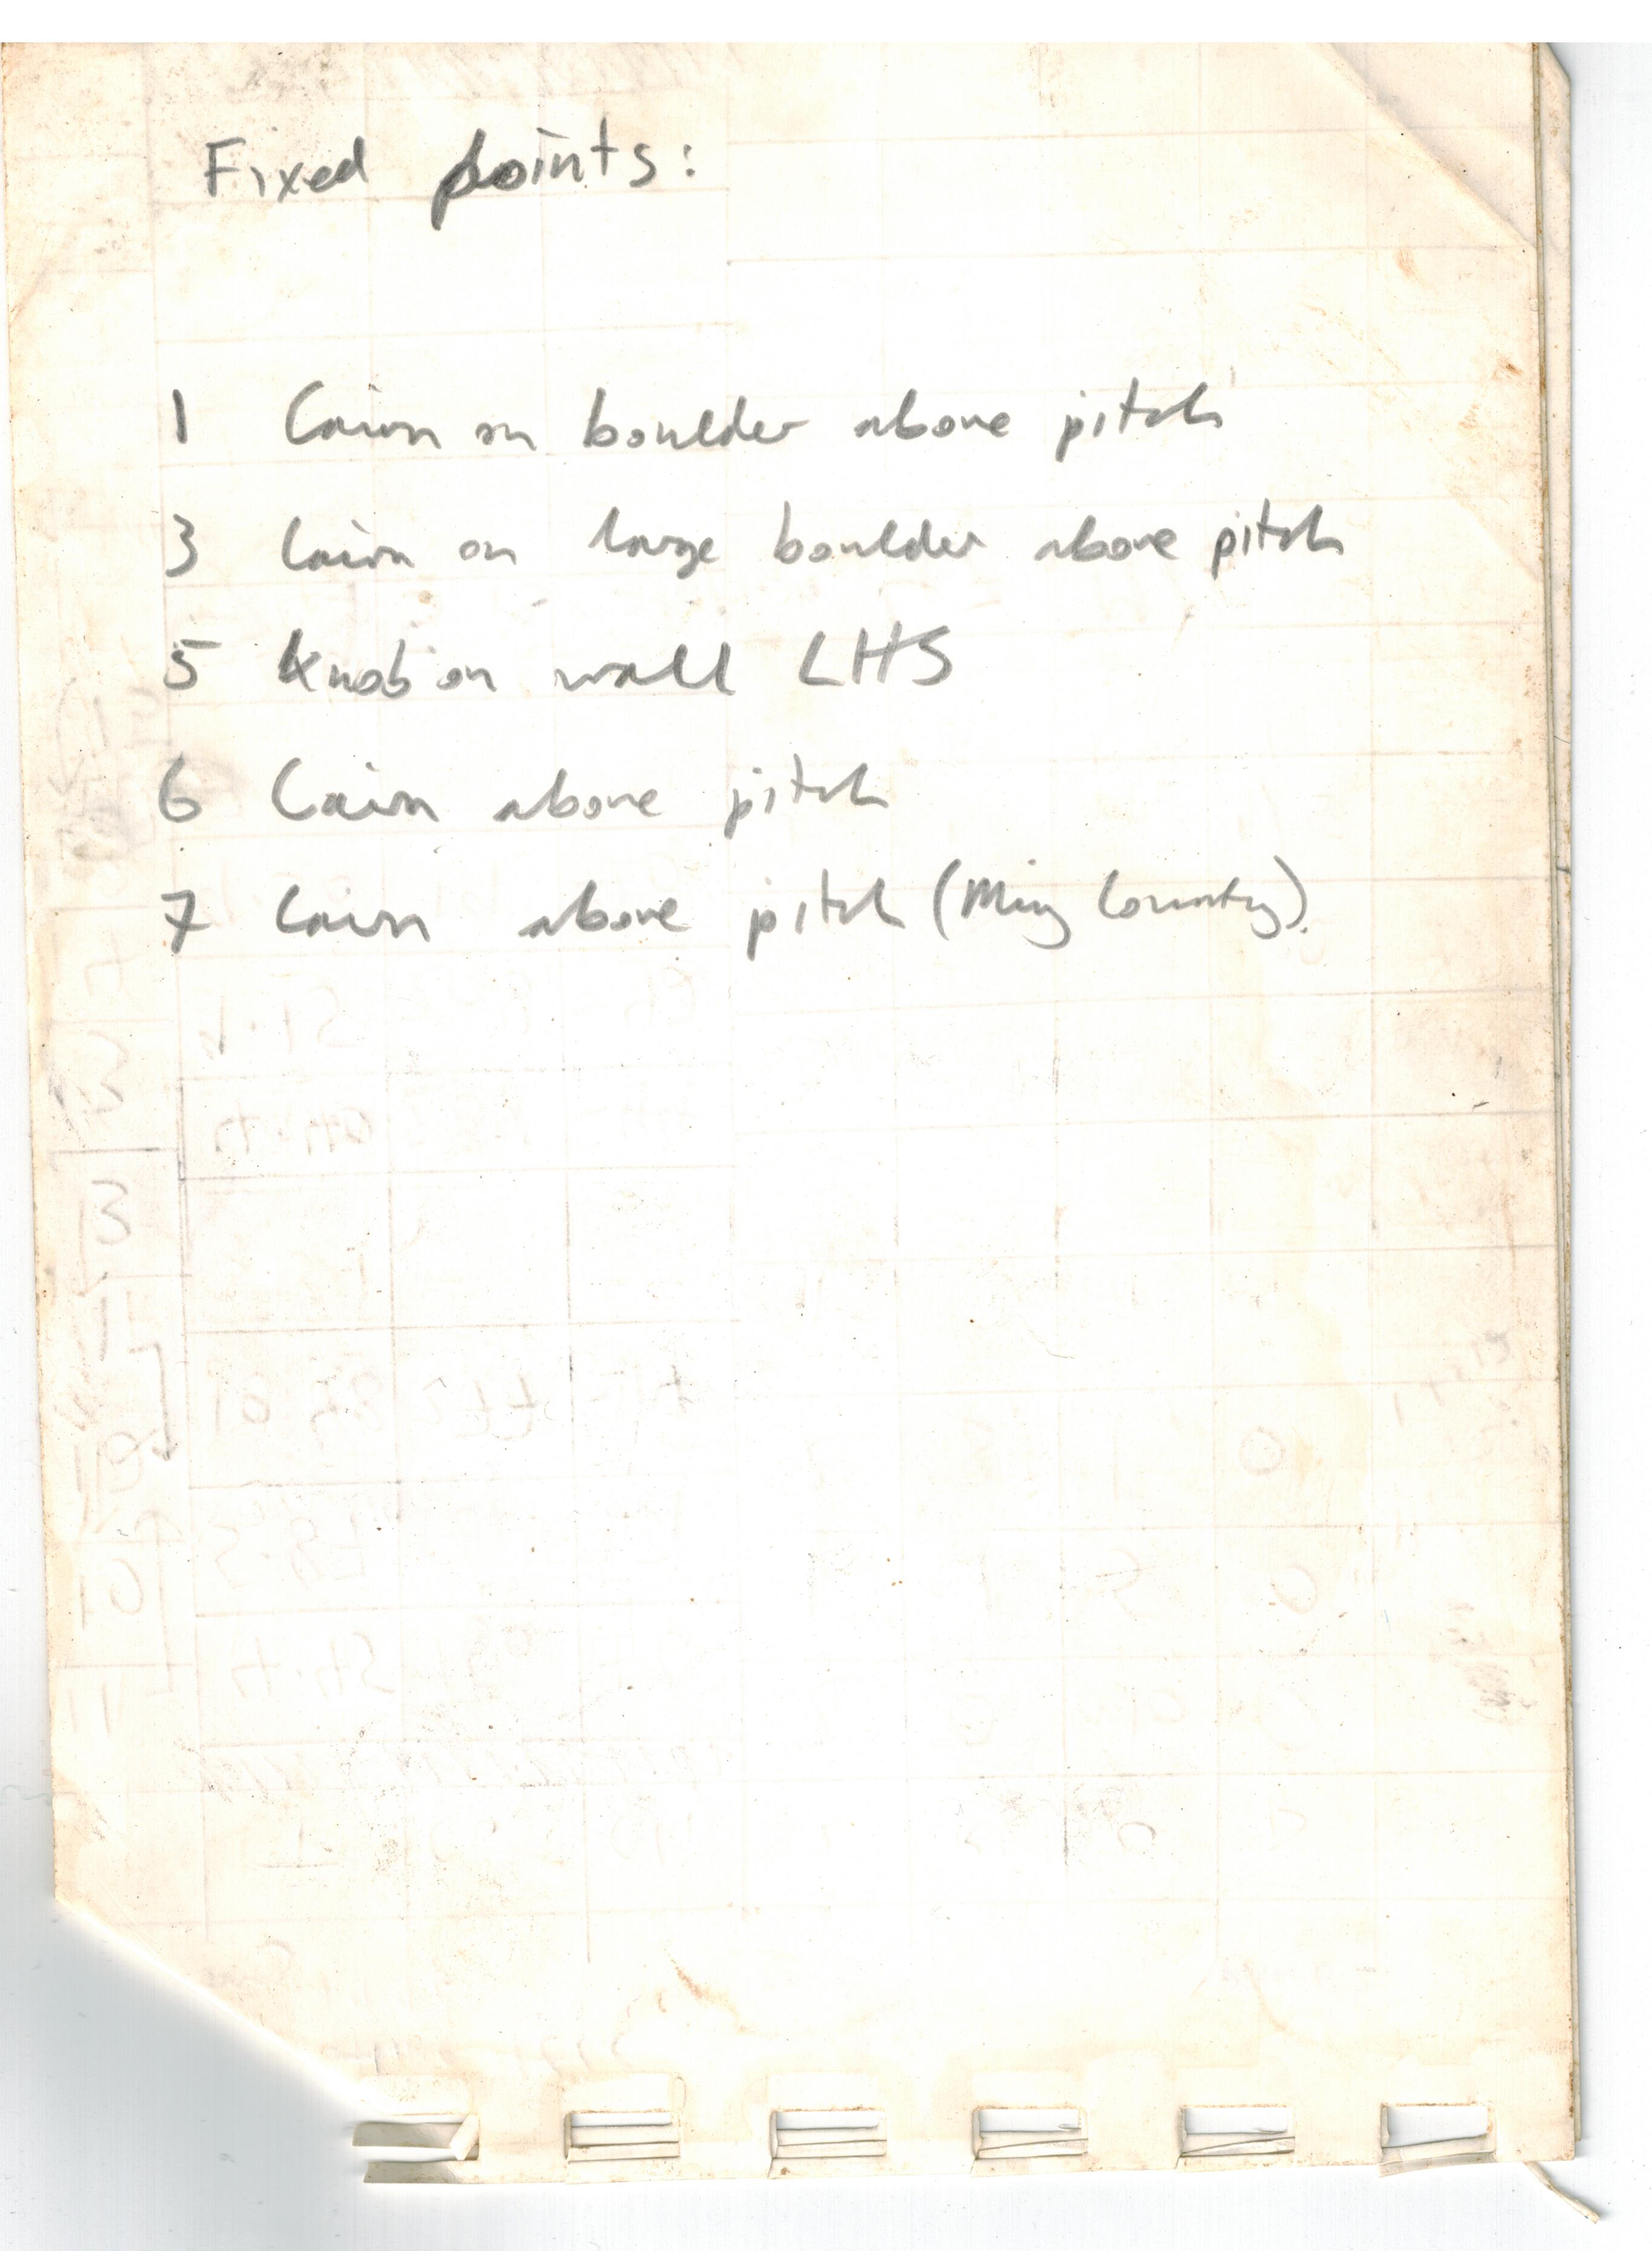 Fixed points:
1 Cairn on boulder above pitch
3 Cairn on large boulder above pitch
5 Knob on wall LHS
6 Cairn above pitch
7 Cairn above pitch (Ming Country).